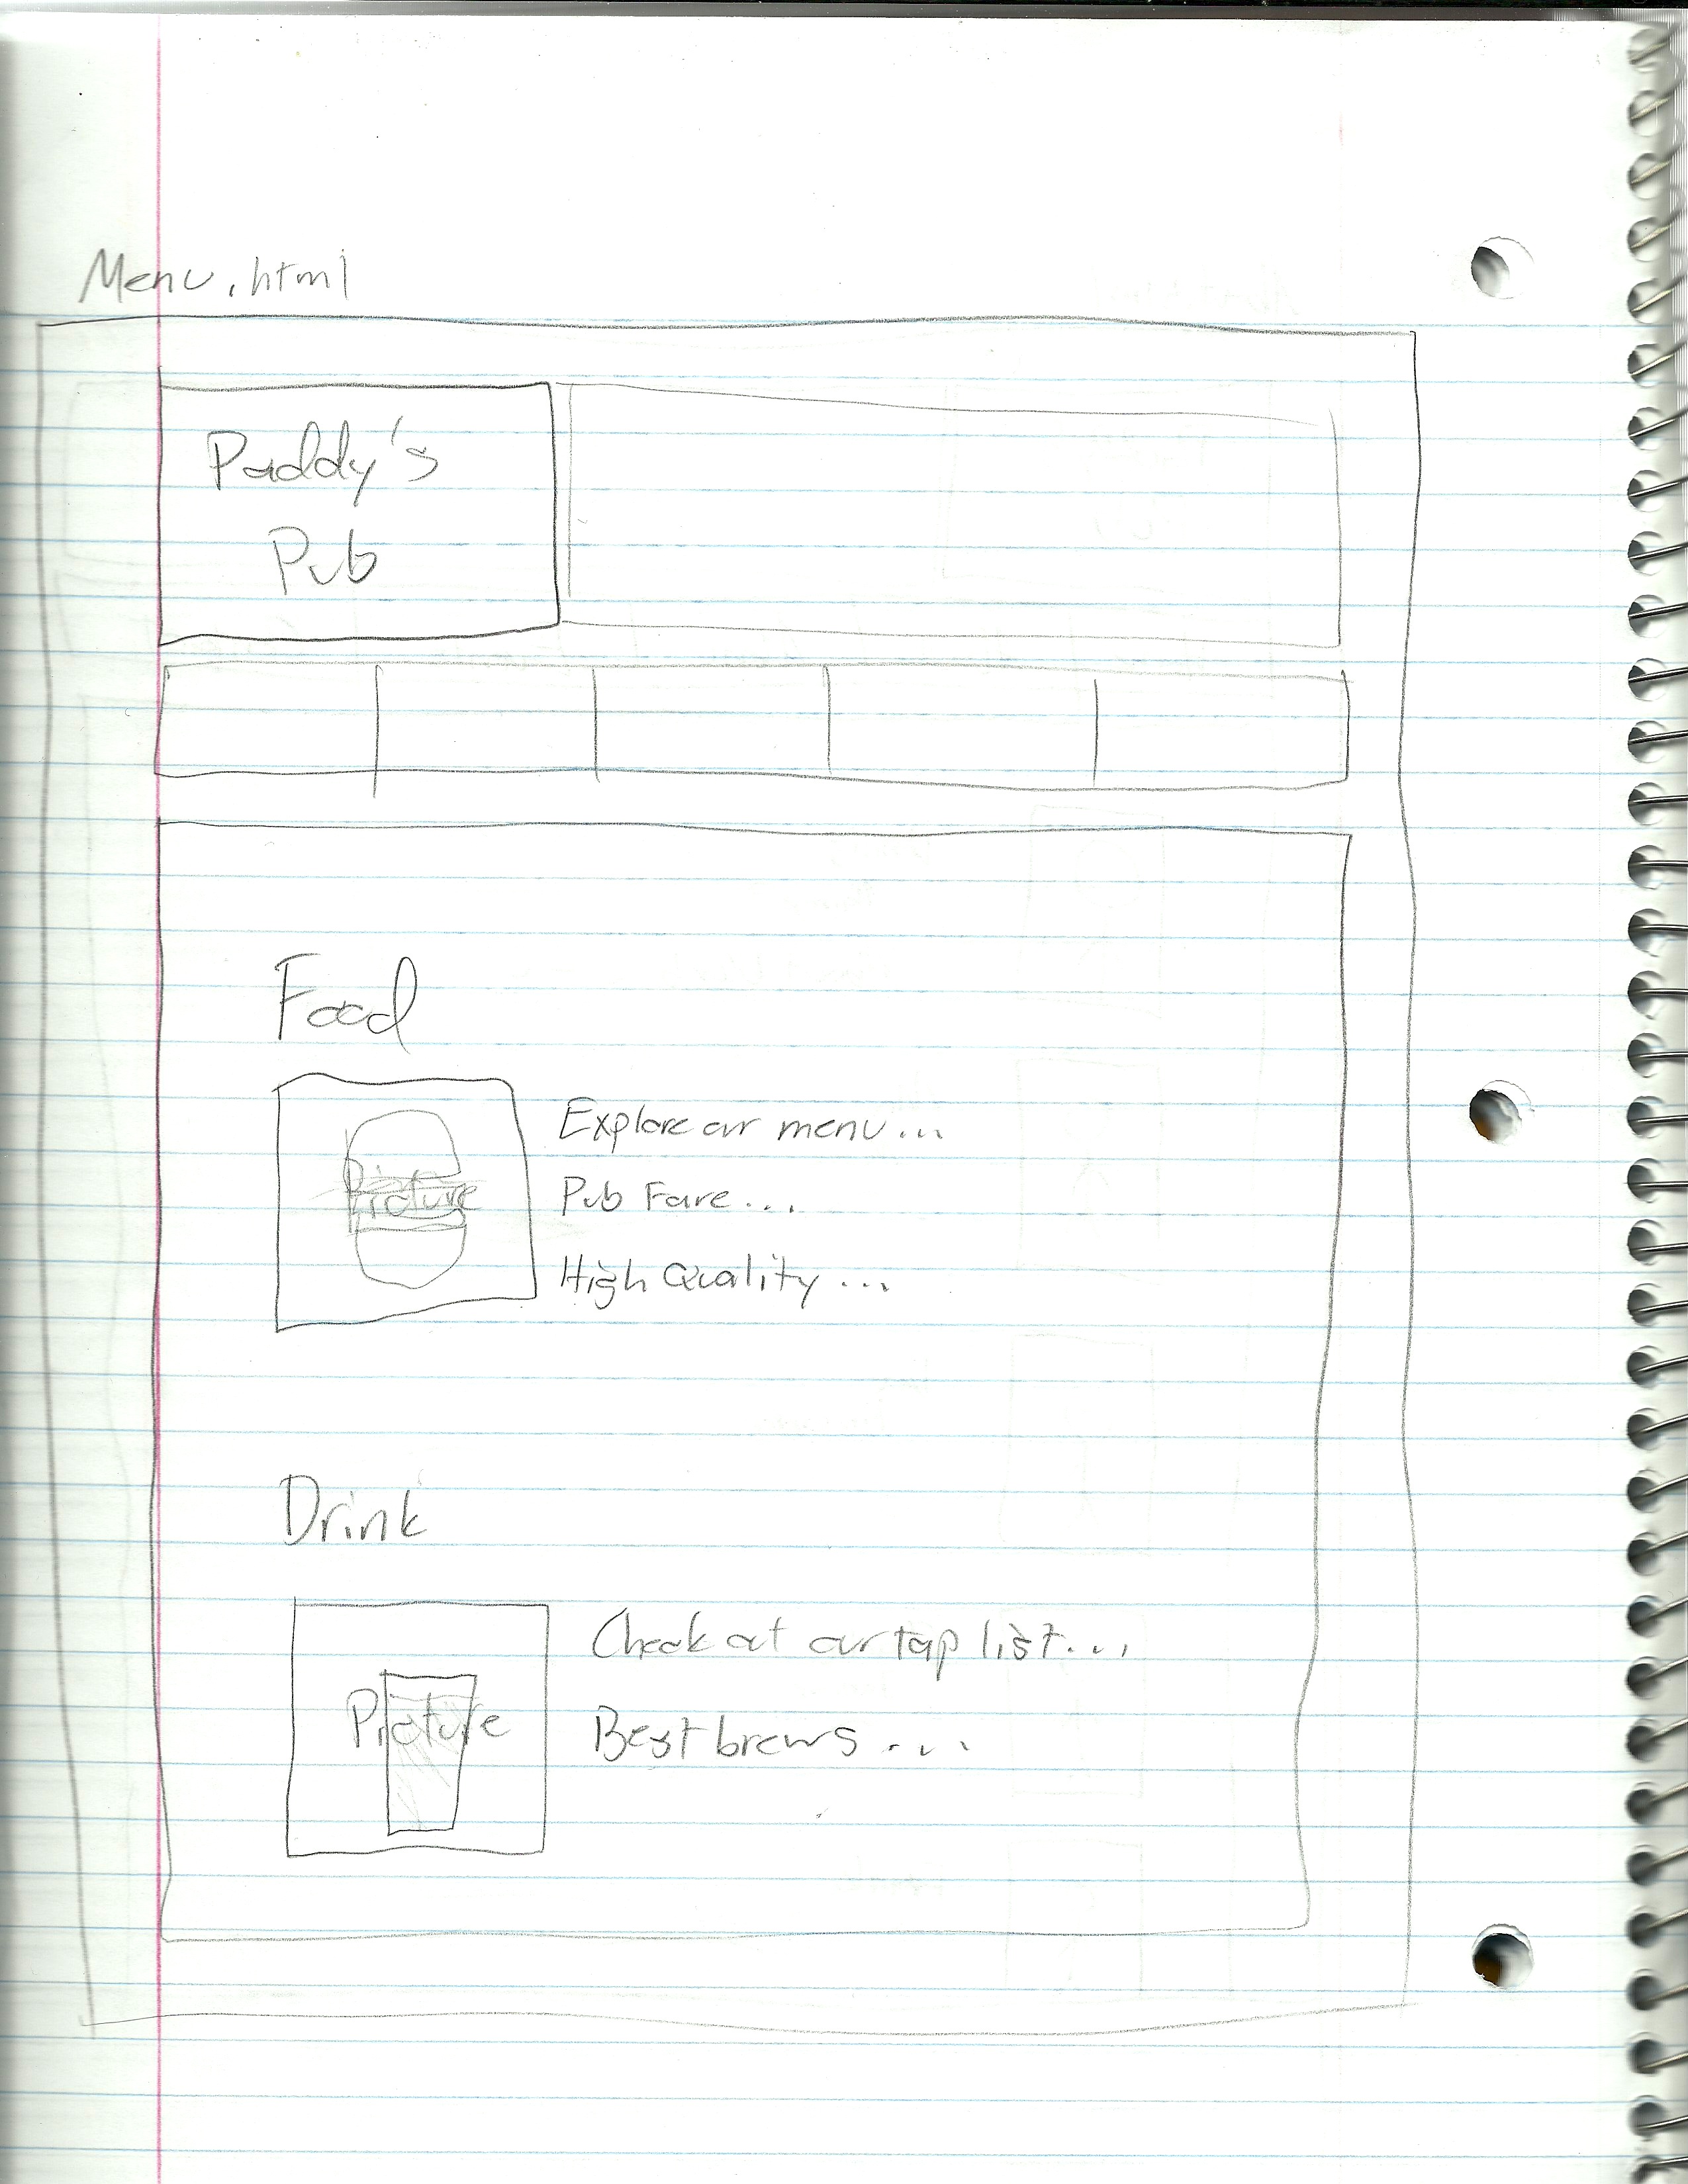 Menu.html
Paddy's
Pub
Food
Picture
Explore our menu...
Pub Fare...
High Quality...
Drink
Picture
Check out our tap list...
Best brews...